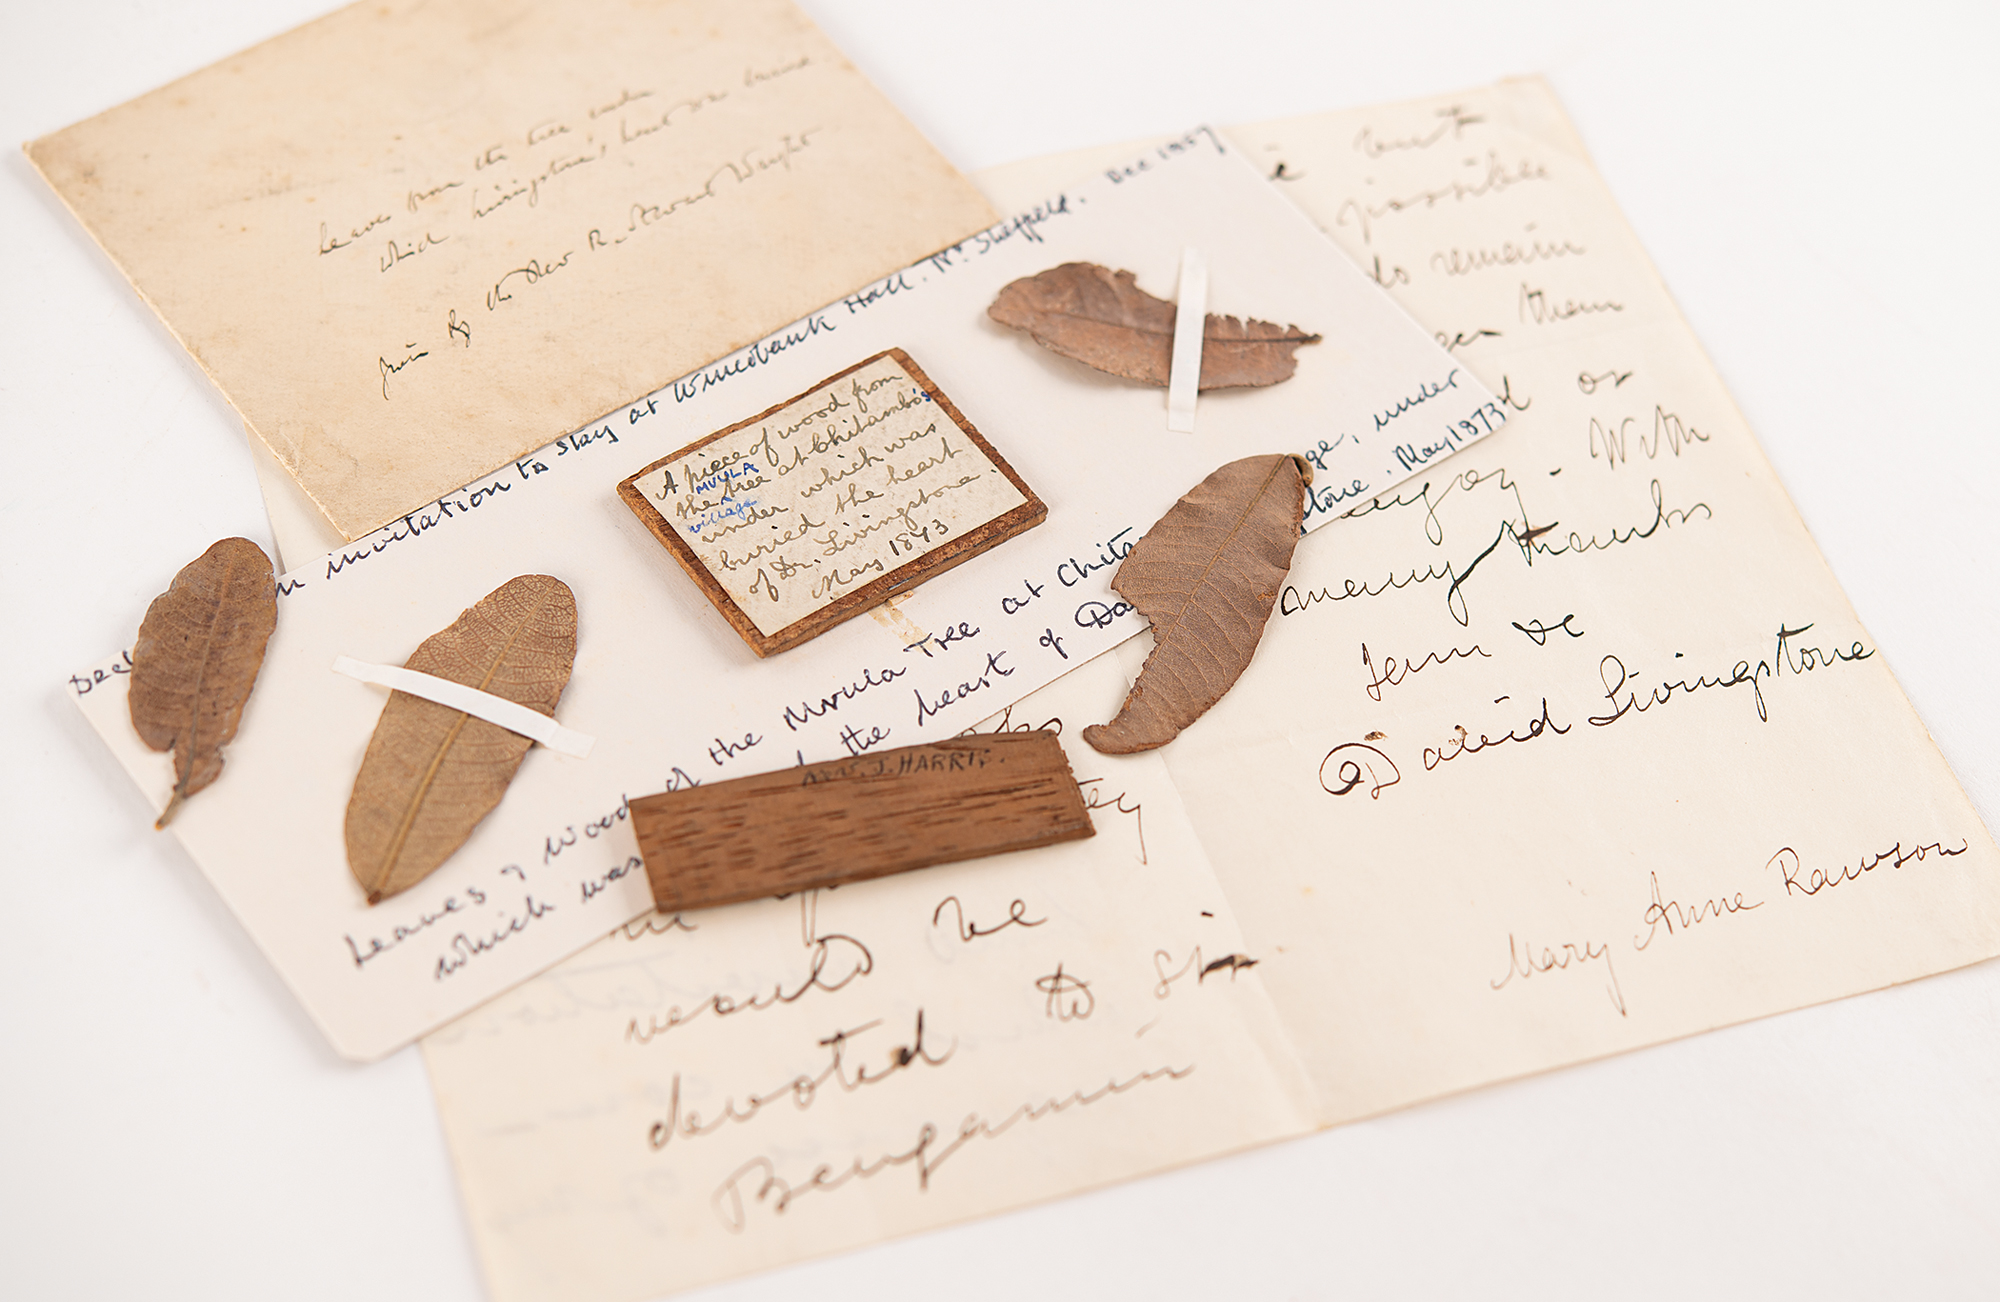 Leaves from the tree under
which Livingstone's heart was buried
given by the Rev R. Stewart Wright
Decl
an invitation to stay at Wincobank Hall. Nr. Sheffield. Dec 1857
A piece of wood from
the MVULA tree at Chitambo's
village
under which was
buried the heart
of Dr. Livingstone
May 1873
Leaves & wood of the Mvula Tree at Chita ge, under
which was the heart of Da stone. May 1873
W. J. HARRIS.
would be
devoted to Sir
Benjamin
but
possible
to remain
them
or
enjoy. With
many thanks
I am &c
David Livingstone
Mary Anne Rawson